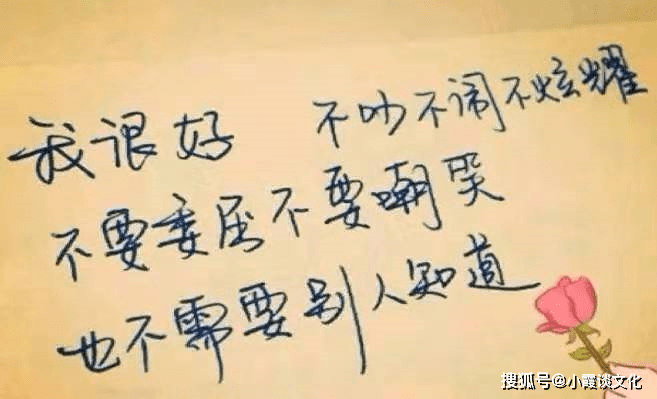 我很好 不吵不闹不炫耀
不要委屈不要嘲笑
也不需要别人知道
搜狐号@小霞谈文化